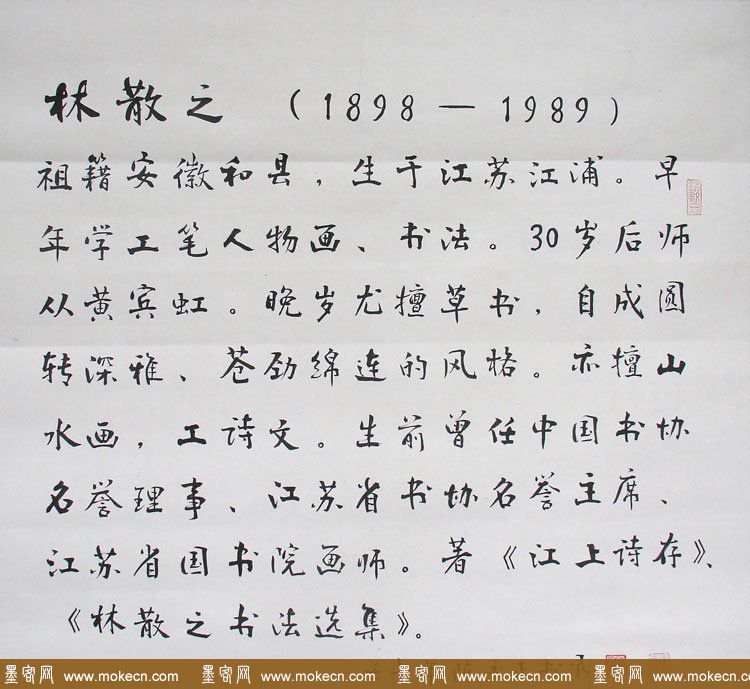 林散之 (1898—1989)
祖籍安徽和县，生于江苏江浦。早
年学工笔人物画、书法。30岁后师
从黄宾虹。晚岁尤擅草书，自成圆
转深雅、苍劲绵连的风格。亦擅山
水画，工诗文。生前曾任中国书协
名誉理事、江苏省书协名誉主席、
江苏省国书院画师。著《江上诗存》、
《林散之书法选集》。
墨客网 www.mokecn.com 墨客网 www.mokecn.com 墨客网 www.mokecn.com 墨客网